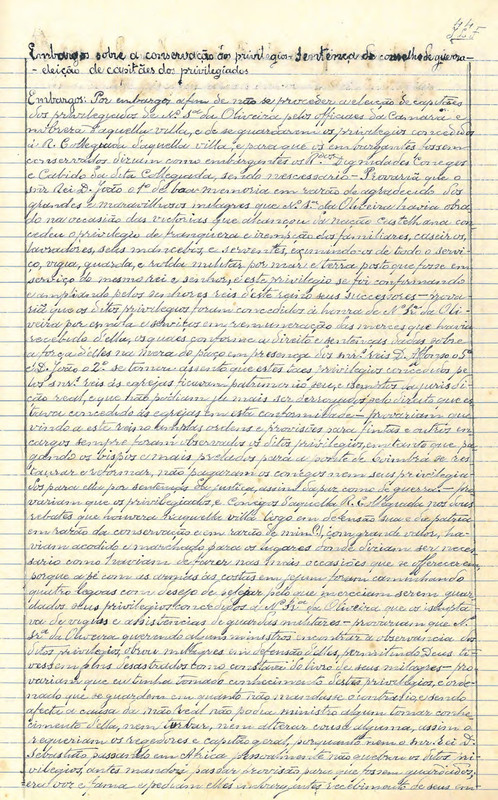 Embargos sobre a conservação dos privilegios - Sentença do conselho de guerra -
- eleição de capitães dos privilegiados
Embargos: Por embargos a fim de não se proceder a eleição de capitães
dos privilegiados de Nª Srª da Oliveira pelos officiaes da Camara e
nobreza d'aquella villa, e de se guardarem os privilegios concedidos
á R. Collegiada d'aquella villa, e para que os embargantes fossem
conservados diziam como embargantes os Dignidades Conegos
e Cabido da dita Collegiada, sendo necessario - Provaria que o
snr Rei D. João 1º de boa memoria em razão de agradecido dos
grandes e maravilhosos milagres que Nª Srª da Oliveira havia obra-
do na occasião das victorias que alcançou da nação Castelhana con-
cedeu o privilegio de e isenção dos familiares, caseiros,
lavradores, seus mancebos, e serventes, eximindo-os de todo o servi-
ço, vigia, guarda, e rolda militar por mar e terra, posto que fosse em
serviço do mesmo rei e senhor, e este privilegio se foi confirmando
e ampliando pelos senhores reis deste reino seus successores - prova-
ria que os ditos privilegios foram concedidos á honra de Nª Srª da Oli-
veira por esmola e serviços em remuneração das merces que havia
recebido d'ella, os quaes conforme a direito e sentenças dadas sobre
a força d'elles na mera do paço em presença dos snrs reis D. Affonso 5º
e D. João 2º se tomou assento que estes taes privilegios concedidos pe-
los snrs reis ás egrejas ficavam patrimonio seu, e isentos da jurisdi-
ção real, e que não podiam jámais ser derrogados pelo direito que es-
tava concedido ás egrejas em esta conformidade - provariam que
vindo a este reino muitas ordens e provisões para fintas e outros en-
cargos sempre foram observados os ditos privilegios, emtanto que pa-
gando os bispos e mais prelados para a ponte de Coimbra se res-
taurar e reformar, não pagaram os conegos nem seus privilegia-
dos para ella por sentenças da justiça, assim da paz como de guerra - Pro-
variam que os privilegiados, e Conegos d'aquella R. Collegiada nos dous
rebates que houvera n'aquella villa logo em defensão sua e da patria
em razão da conservação e em razão de com grande valor, ha-
viam acodido e marchado para os lugares donde diziam ser neces-
sario como haviam de fazer nas mais occasiões que se offerecerem
porque a pé com as armas ás costas em jejum foram caminhando
quatro legoas com desejo de pelo que mereciam serem guar-
dados seus privilegios concedidos a Nª Srª da Oliveira que os isempta-
va de vigias e assistencias de guardas militares - provariam que Nª
Srª da Oliveira, querendo alguns ministros encontrar a observancia dos
ditos privilegios, obrou milagres em defensão d'elles, permitindo Deus ti-
vessem fins desastrados como constava do livro de seus milagres - pro-
variam que eu tinha tomado conhecimento d'estes privilegios, e orde-
nado que se guardem em quanto não mandasse o contrario, e sendo
afecta a causa da mão real não podia ministro algum tomar conhe-
cimento d'ella, nem turbar, nem alterar cousa alguma, assim o
requeriam os regedores e capitão geral, porquanto nem o snr. rei D.
Sebastião passando em Africa pessoalmente não quebrou os ditos pri-
vilegios, antes mandou passar provisão para que fossem guardados;
era voz e fama e pediam elles embargantes recebimento de seus em-